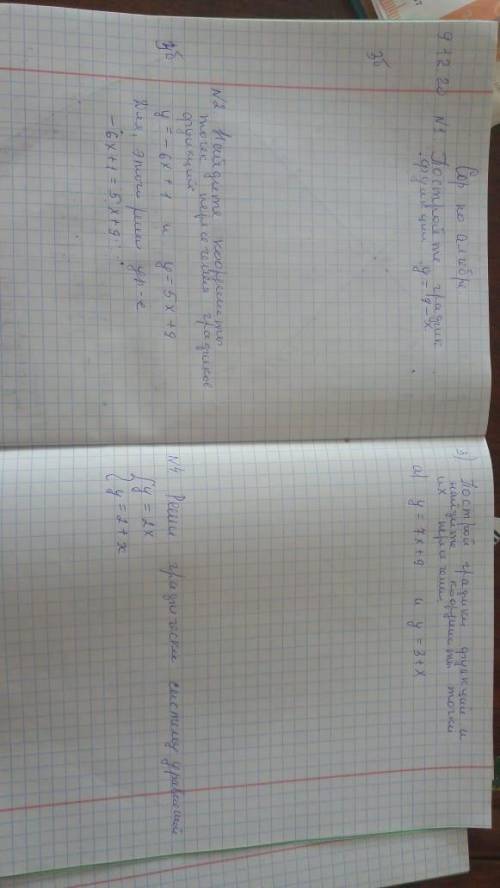 Сор по алгебр
N1 Постройте график
функции y =
N2 Найдите координаты
точек пересечения графиков
функций
y = -6x + 1 и y = 5x + 9
Для этого реши ур-е
-6x+1 = 5x+9
3) Построй графики функции и
найдите координаты точки
их пересечения
а) y = 7x+9 и y = 3+x
N4 Реши графически систему уравнений
{ y = 2x
{ y = 2 + x